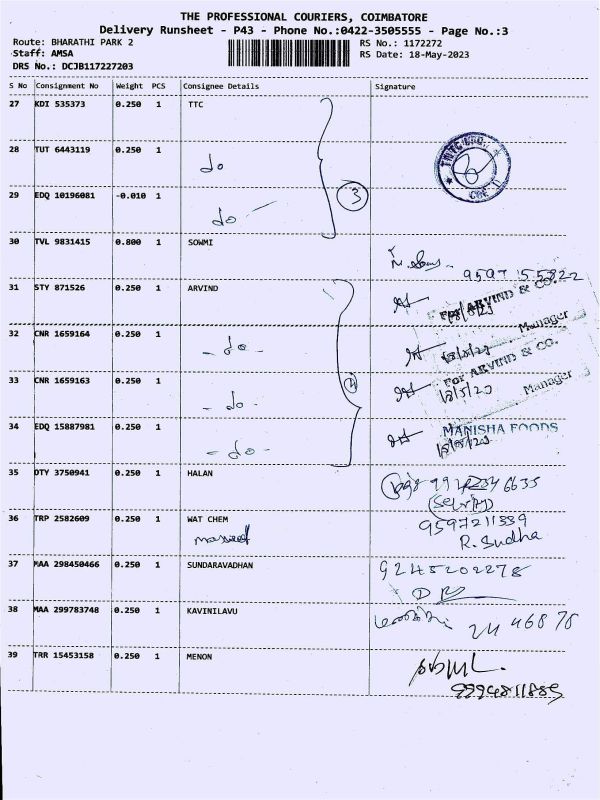 THE PROFESSIONAL COURIERS, COIMBATORE
Delivery Runsheet - P43 - Phone No.:0422-3505555 - Page No.:3
Route: BHARATHI PARK 2
Staff: AMSA
DRS No.: DCJB117227203
RS No.: 1172272
RS Date: 18-May-2023
S No Consignment No Weight PCS Consignee Details Signature
27 KDI 535373 0.250 1 TTC
28 TUT 6443119 0.250 1
do
29 EDQ 10196081 -0.010 1
do
3
30 TVL 9831415 0.800 1 SOWMI
9597 155822
31 STY 871526 0.250 1 ARVIND
For ARVIND & CO.
18/5/23
Manager
32 CNR 1659164 0.250 1
- do -
18/5/23
For ARVIND & CO.
33 CNR 1659163 0.250 1
- do -
4
18/5/23
Manager
34 EDQ 15887981 0.250 1
- do -
MANISHA FOODS
18/5/23
35 DTY 3750941 0.250 1 HALAN
36 TRP 2582609 0.250 1 WAT CHEM
9597211539
R. Sudha
37 MAA 298450466 0.250 1 SUNDARAVADHAN
9245202278
38 MAA 299783748 0.250 1 KAVINILAVU
39 TRR 15453158 0.250 1 MENON
9994811889